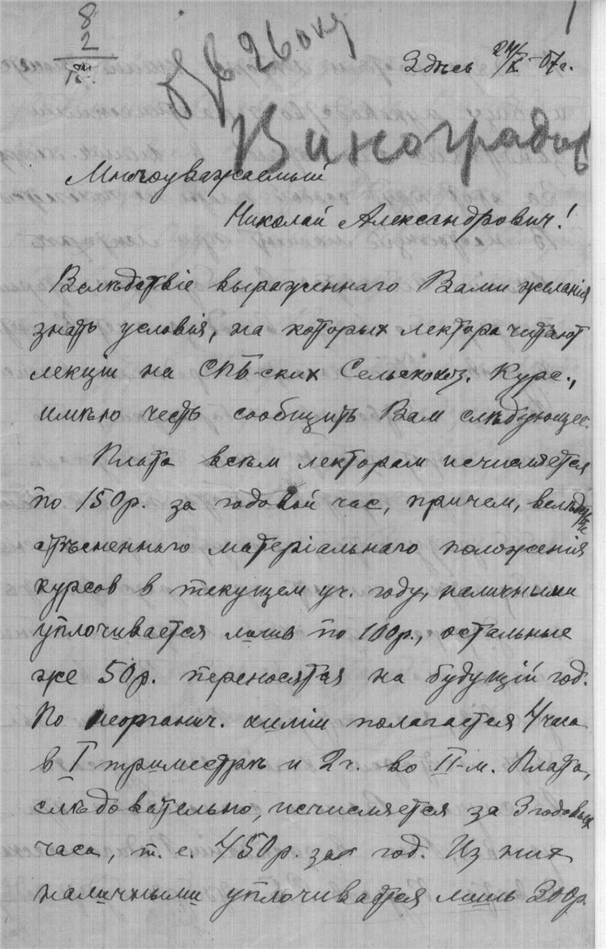 8
2
Здѣсь 24/X 07 г.
26 окт
Виноградов
Многоуважаемый
Николай Александрович!
Вслѣдствіе выраженнаго Вами желанія
знать условія, на которых лектора читают
лекціи на СПБ-ских Сельскохоз. Курс.,
имѣю честь сообщить Вам слѣдующее.
Плата всѣм лекторам исчисляется
по 150 р. за годовой час, причем, вслѣдствіе
стѣсненнаго матеріальнаго положенія
курсов в текущем уч. году, наличными
уплочивается лишь по 100 р., остальные
же 50 р. переносятся на будущій год.
По неорганич. химіи полагается 4 часа
в I триместрѣ и 2 ч. во II-м. Плата,
слѣдовательно, исчисляется за 3 годовых
часа, т. е. 450 р. за год. Из них
наличными уплочивается лишь 300 р.